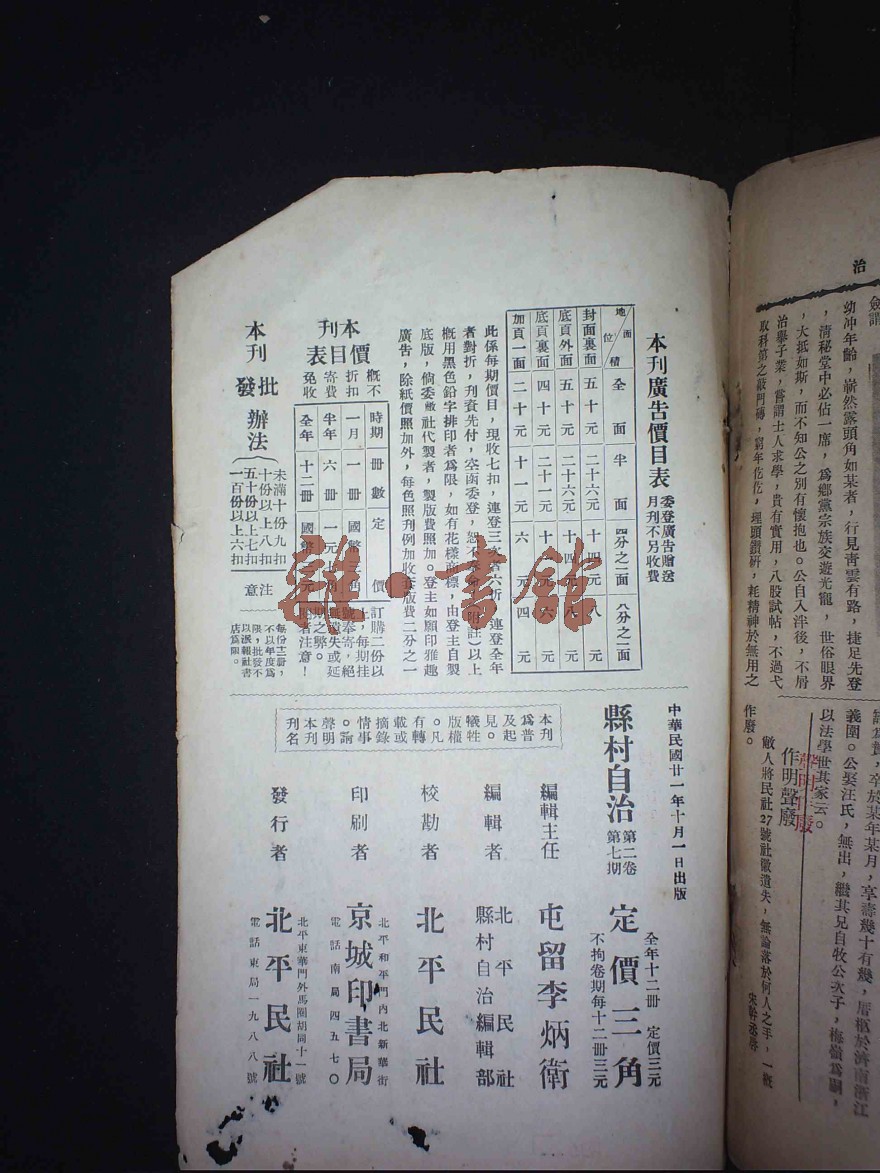 本刊廣告價目表
委登廣告贈送
月刊不另收費
地位 面積 全面 半面 四分之一面 八分之一面
封面裏面 五十元 二十六元 十四元 八元
底頁外面 五十元 二十六元 十四元 八元
底頁裏面 四十元 二十一元 十一元 六元
加頁一面 二十元 十一元 六元 四元
此係每期價目,現收七扣,連登三次者六折,連登全年
者對折,刊資先付,空函委登,恕不
附註:以上
概用黑色鉛字排印者為限,如有花樣商標,由登主自製
底版,倘委敝社代製者,製版費照加。登主如願印雅趣
廣告,除紙價照加外,每色照刊例加收
版費二分之一
本刊價目表
概不折扣
寄費免收
時期 冊數 定價
一月 一冊 國幣三角
半年 六冊 一元
全年 十二冊 國幣 元
訂購二份以
上,每期掛
號奉寄,絕
無遺失或延
期之弊。
閱者注意!
本刊批發辦法
未滿十份九扣
十份以上八扣
五十份以上七扣
一百份以上六扣
注意
每份十二冊,
不以年度為
限,批發不
以派報社書
店為限。
中華民國廿一年十月一日出版
縣村自治
第二卷
第七期
定價三角
全年十二冊 定價三元
不拘卷期每十二冊三元
本刊
為普
及起
見。
犧牲
版權
。凡
有轉
載或
摘錄
情事
。請
聲明
本刊
刊名
編輯主任 屯留李炳衛
編輯者 北平民社
縣村自治編輯部
校勘者 北平民社
印刷者 京城印書局
北平和平門內北新華街
電話南局四五七〇
發行者 北平民社
北平東華門外馬圈胡同十一號
電話東局一九八八號
雜·書館
治
幼冲年齡,嶄然露頭角如某者,行見靑雲有路,捷足先登
,清秘堂中必佔一席,為鄉黨宗族交遊光寵,世俗眼界
,大抵如斯,而不知公之別有懷抱也。公自入泮後,不屑
治舉子業,嘗謂士人求學,貴有實用,八股試帖,不過弋
取科第之敲門磚,窮年矻矻,埋頭鑽研,耗精神於無用之
卒於某年某月,享壽幾十有幾,厝柩於濟南浙江
義園。公娶汪氏,無出,繼其兄自牧公次子,梅嶺為嗣,
以法學世其家云。
聲明作廢
作明聲廢
敝人將民社27號社徽遺失,無論落於何人之手,一概
作廢。
宋幹丞啓